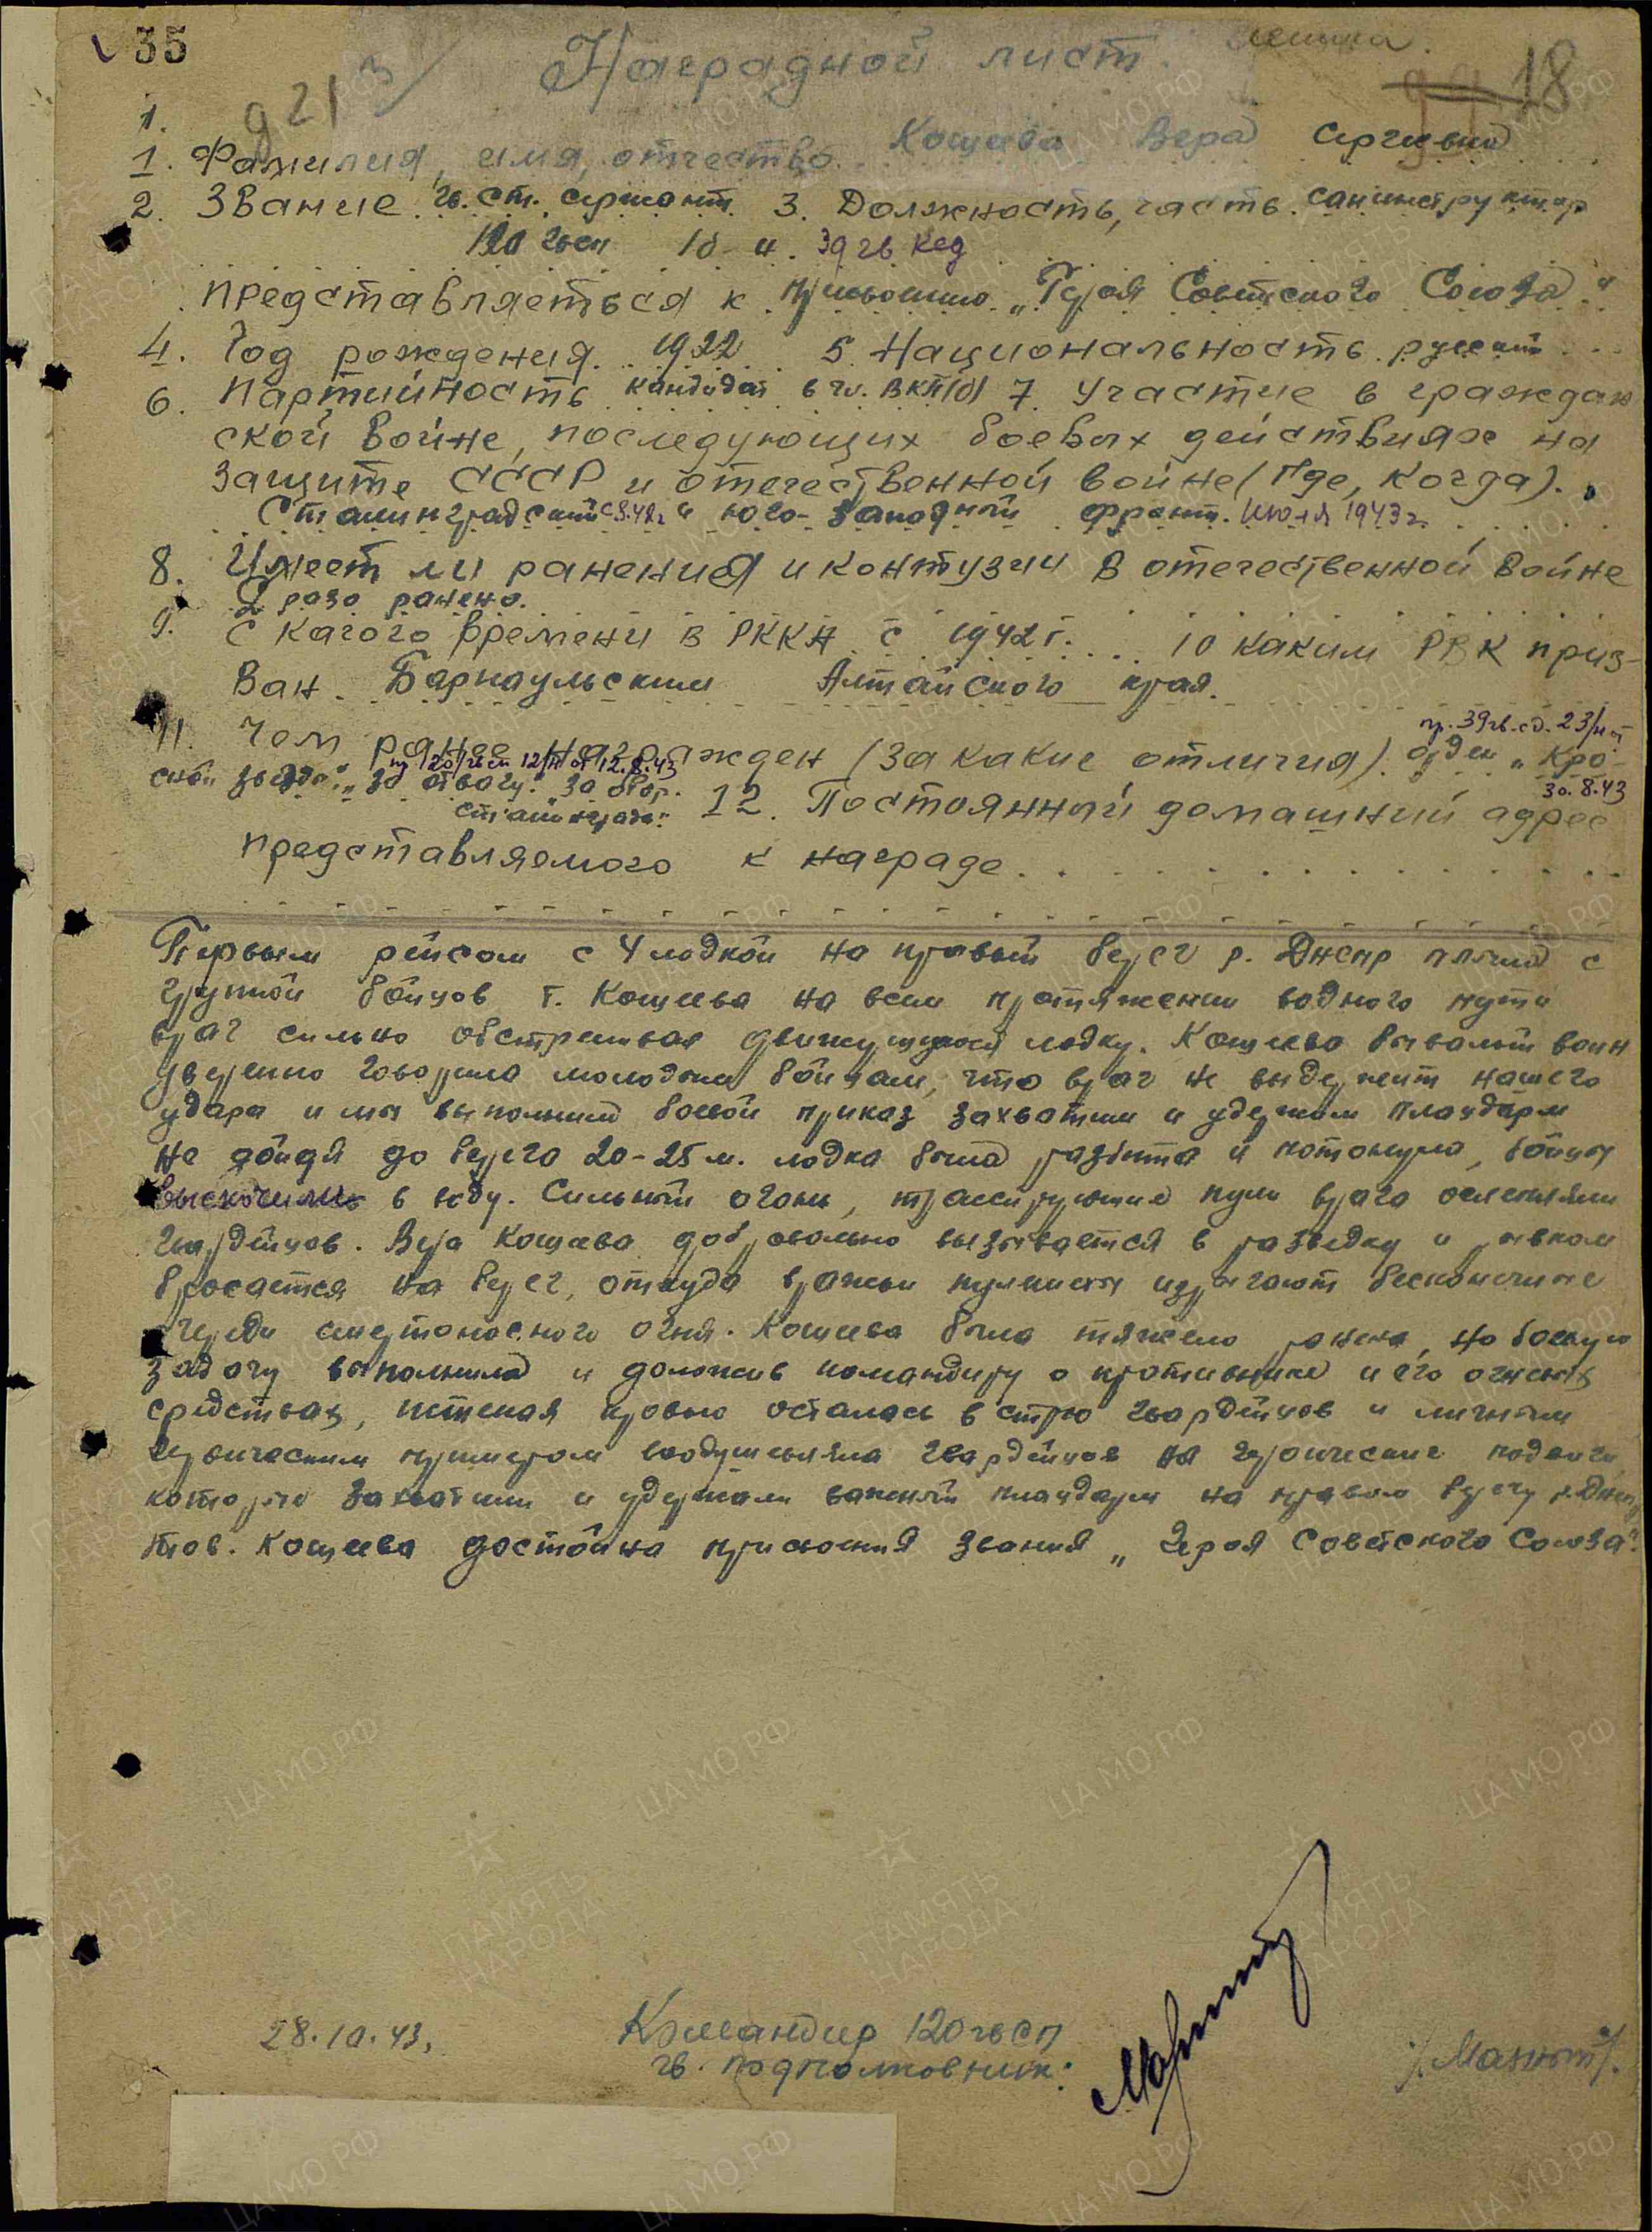 35
Наградной лист.
18
921
1.
1. Фамилия, имя, отчество. Кощеева Вера Сергеевна
2. Звание гв. ст. сержант 3. Должность, часть. санинструктор
120 гвсп 39 гв ксд
представляеться к присвоению „Героя Советского Союза"
4. Год рождения. 1922 5. Национальность. русский
6. Партийность кандидат в чл. ВКП(б) 7. Участие в граждан
ской войне, последующих боевых действиях на
защите СССР и отечественной войне (Где, когда).
Сталинградский с 8.42г и юго-западный фронт. Июня 1943г.
8. Имеет ли ранения и контузии в отечественной войне
2 раза ранена.
9. с кагого времени в РККА с 1942 г. 10 каким РВК приз-
ван. Барнаульским Алтайского края.
пр. 39 гв. сд. 23/н от
11. Чем ранее награжден (за какие отличия). орден „Кра-
пр 120 гвсп 12/н от 12.8.43
сной звезды", „За отвагу". За обор. 30.8.43
Сталинграда" 12. Постоянный домашний адрес
представляемого к награде.
Первым рейсом с 4 лодкой на правый берег р. Днепр плыла с
группой бойцов т. Кощеева на всем протяжении водного пути
враг сильно обстреливал движущуюся лодку. Кощеева бывалый воин
уверенно говорила молодым бойцам, что враг не выдержит нашего
удара и мы выполним боевой приказ захватим и удержим плацдарм
Не дойдя до берега 20-25 м. лодка была разбита и потонула, бойцы
выскочили в воду. Сильный огонь, трассирующие пули врага ослепляли
гвардейцев. Вера Кощеева добровольно вызывается в разведку и рывком
бросается на берег, откуда вражьи пулеметы изрыгают бесконечные
череди смертоносного огня. Кощеева была тяжело ранена, но боевую
задачу выполнила и доложив командиру о противнике и его огневых
средствах, истекая кровью осталась в строю гвардейцев и личным
героическим примером воодушевляла гвардейцев на героические подвиги,
которые захватили и удержали важный плацдарм на правом берегу р. Днепр
Тов. Кощеева достойна присвоения звания „Героя Советского Союза".
28.10.43.
Командир 120 гвсп
гв. подполковник:
ЦА МО РФ
ПАМЯТЬ НАРОДА